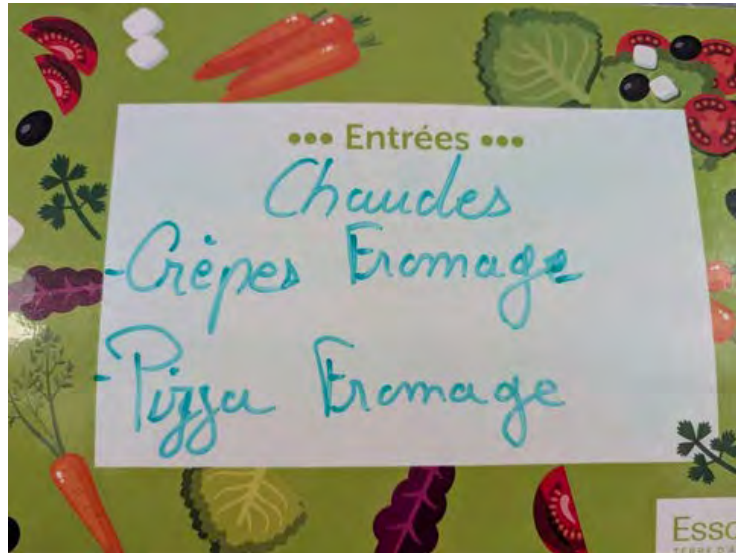 ••• Entrées •••
Chaudes
- Crêpes Fromage
- Pizza Fromage
Esso